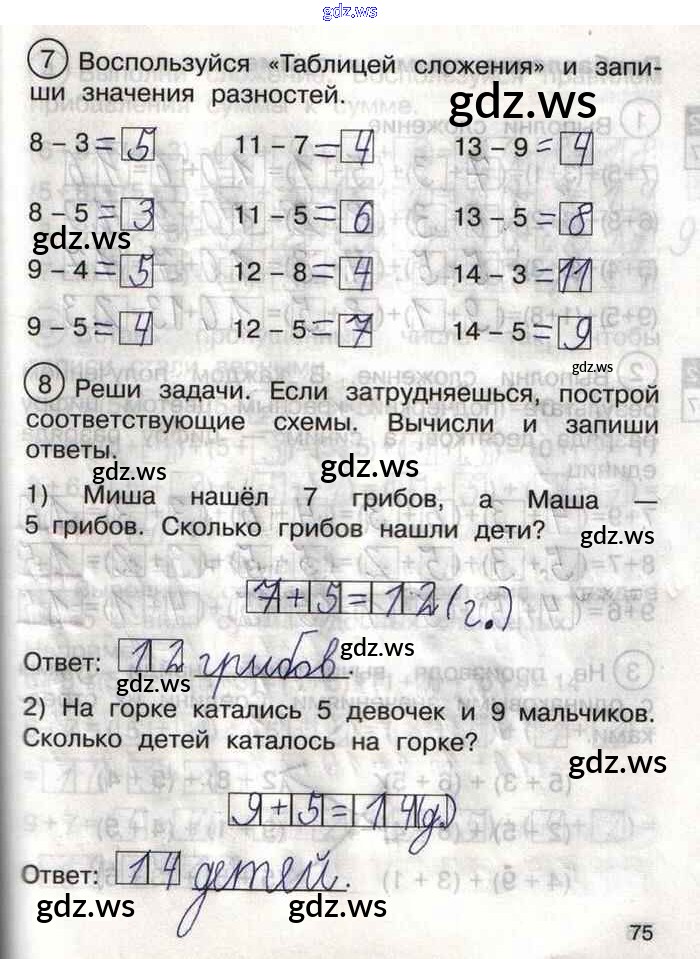 gdz.ws
7 Воспользуйся «Таблицей сложения» и запи-
ши значения разностей.
gdz.ws
8 – 3 = 5 11 – 7 = 4 13 – 9 = 4
8 – 5 = 3 11 – 5 = 6 13 – 5 = 8
gdz.ws gdz.ws
9 – 4 = 5 12 – 8 = 4 14 – 3 = 11
9 – 5 = 4 12 – 5 = 7 14 – 5 = 9
gdz.ws
8 Реши задачи. Если затрудняешься, построй
соответствующие схемы. Вычисли и запиши
ответы.
gdz.ws gdz.ws
1) Миша нашёл 7 грибов, а Маша —
5 грибов. Сколько грибов нашли дети?
gdz.ws
7 + 5 = 12 (г.)
Ответ: 12 грибов.
gdz.ws gdz.ws
2) На горке катались 5 девочек и 9 мальчиков.
Сколько детей каталось на горке?
gdz.ws
9 + 5 = 14 (д.)
Ответ: 14 детей.
gdz.ws gdz.ws gdz.ws
75